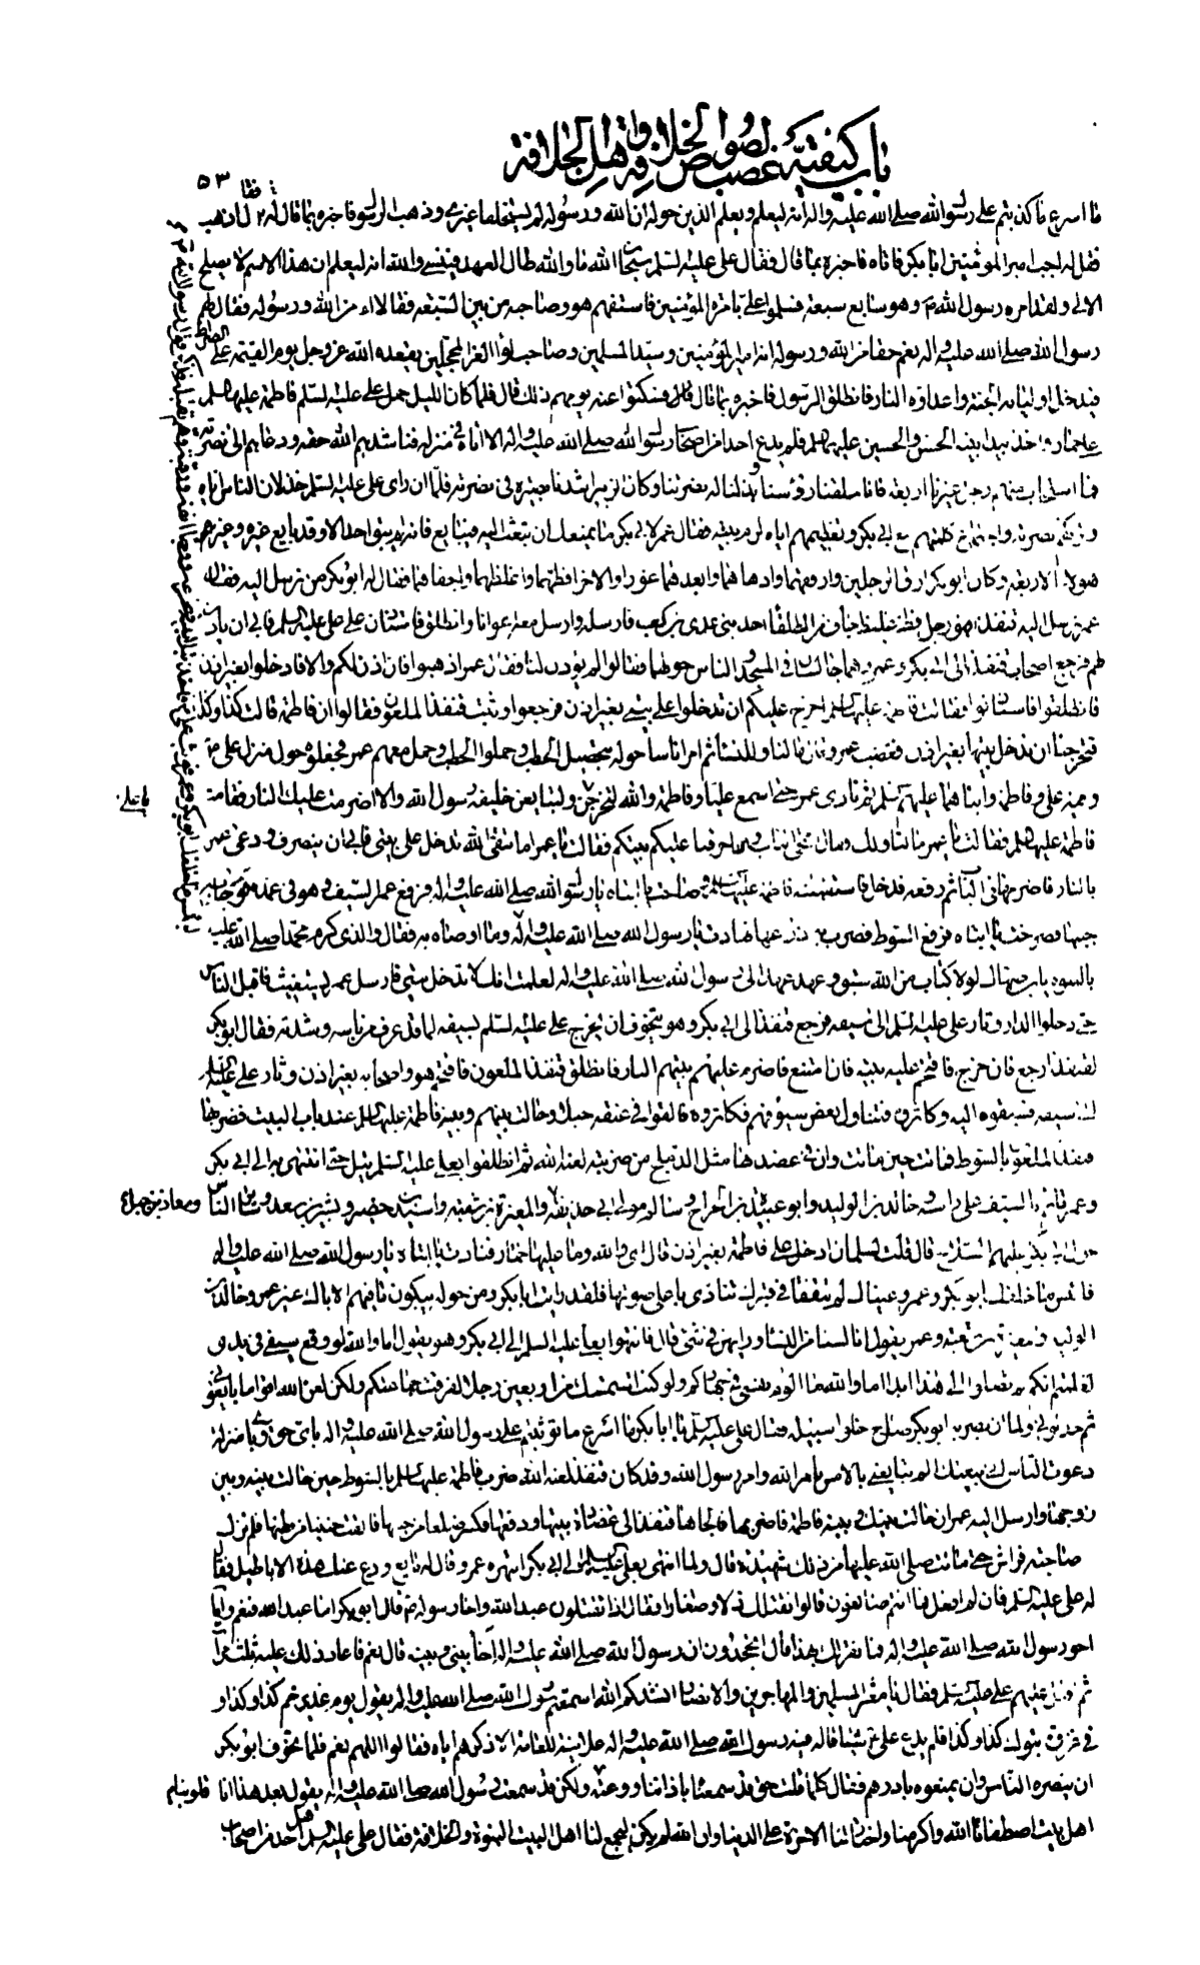 باب كيفية غصب لصوص الخلافة واهل الخلافة
٥٣
ما اسرع ما كذبتم على رسول الله صلى الله عليه واله انه ليعلم ويعلم الذين حوله ان الله ورسوله لم يستخلفا غيري وذهب الرسول فاخبره بما قال له قال اذهب
فقل له اجب امير المؤمنين ابا بكر فاتاه فاخبره بما قال فقال علي عليه السلم سبحان الله ما والله طال العهد فينسى والله انه ليعلم ان هذا الاسم لا يصلح
الا لي ولقد امره رسول الله وهو سابع سبعة فسلموا علي بامرة المؤمنين فاستفهم هو وصاحبه من بين السبعة فقالا امر من الله ورسوله فقال لهم
رسول الله صلى الله عليه واله نعم حقا من الله ورسوله انه امير المؤمنين وسيد المسلمين وصاحب لواء الغر المحجلين يقعده الله عز وجل يوم القيمة على الصراط
فيدخل اولياءه الجنة واعداءه النار فانطلق الرسول فاخبره بما قال قال فسكتوا عنه يومهم ذلك قال فلما كان الليل حمل علي عليه السلم فاطمة عليها السلم
على حمار واخذ بيد ابنيه الحسن والحسين عليهما السلم فلم يدع احدا من اصحاب رسول الله صلى الله عليه واله الا اتاه في منزله فناشدهم الله حقه ودعاهم الى نصرته
فما استجاب منهم رجل غيرنا اربعة فانا حلقنا رؤسنا وبذلنا له نصرتنا وكان الزبير اشدنا بصيرة في نصرته فلما ان راى علي عليه السلم خذلان الناس اياه
وتركهم نصرته واجتماع كلمتهم مع ابي بكر وتعظيمهم اياه لزم بيته فقال عمر لابي بكر ما يمنعك ان تبعث اليه فيبايع فانه لم يبق احد الا وقد بايع غيره وغير
هؤلاء الاربعة وكان ابو بكر ارق الرجلين وارفقهما وادهاهما وابعدهما غورا والاخر افظهما واغلظهما واجفاهما فقال له ابو بكر من نرسل اليه فقال
عمر نرسل اليه قنفذا فهو رجل فظ غليظ جاف من الطلقاء احد بني عدي بن كعب فارسله وارسل معه اعوانا وانطلق فاستاذن على علي عليه السلم فابى ان ياذن
لهم فرجع اصحاب قنفذ الى ابي بكر وعمر وهما جالسان في المسجد والناس حولهما فقالوا لم يؤذن لنا فقال عمر اذهبوا فان اذن لكم والا فادخلوا بغير اذن
فانطلقوا فاستاذنوا فقالت فاطمة عليها السلم احرج عليكم ان تدخلوا على بيتي بغير اذن فرجعوا وثبت قنفذ الملعون فقالوا ان فاطمة قالت كذا وكذا
فتحرجنا ان ندخل بيتها بغير اذن فغضب عمر وقال ما لنا وللنساء ثم امر اناسا حوله بتحصيل الحطب وحملوا الحطب وحمل معهم عمر فجعلوه حول منزل علي
وفيه علي وفاطمة وابناهما عليهم السلم ثم نادى عمر حتى اسمع عليا وفاطمة والله لتخرجن يا علي ولتبايعن خليفة رسول الله والا اضرمت عليك النار فقامت
فاطمة عليها السلم فقالت يا عمر ما لنا ولك فقال افتحي الباب والا احرقنا عليكم بيتكم فقالت يا عمر اما تتقي الله تدخل على بيتي فابى ان ينصرف ودعى عمر
بالنار فاضرمها في الباب ثم دفعه فدخل فاستقبلته فاطمة عليها السلم وصاحت يا ابتاه يا رسول الله صلى الله عليه واله فرفع عمر السيف وهو في غمده فوجا به
جنبها فصرخت يا ابتاه فرفع السوط فضرب به ذراعها فنادت يا رسول الله صلى الله عليه واله
حتى دخلوا الدار وثار علي عليه السلم الى سيفه فرجع قنفذ الى ابي بكر وهو يتخوف ان يخرج علي عليه السلم بسيفه لما قد عرف من باسه وشدته فقال ابو بكر
لقنفذ ارجع فان خرج فاقتحم عليه بيته فان امتنع فاضرم عليهم بيتهم النار فانطلق قنفذ الملعون فاقتحم هو واصحابه بغير اذن وثار علي عليه السلم
الى سيفه فسبقوه اليه وكاثروه فتناول بعض سيوفهم فكاثروه فالقوا في عنقه حبلا وحالت بينهم وبينه فاطمة عليها السلم عند باب البيت فضربها
قنفذ الملعون بالسوط فماتت حين ماتت وان في عضدها مثل الدملج من ضربته لعنه الله ثم انطلقوا بعلي عليه السلم يتل حتى انتهى به الى ابي بكر
وعمر قائم بالسيف على راسه وخالد بن الوليد وابو عبيدة بن الجراح وسالم مولى ابي حذيفة والمغيرة بن شعبة واسيد بن حضير وبشير بن سعد وسائر الناس
ومعاذ بن جبل
حول ابي بكر عليهم السلاح قال قلت لسلمان ادخل على فاطمة بغير اذن قال اي والله وما عليها خمار فنادت يا ابتاه يا رسول الله صلى الله عليه واله
فلبئس ما خلفك ابو بكر وعمر وعيناك لم تتفقا في قبرك تنادي باعلى صوتها فلقد رايت ابا بكر ومن حوله يبكون ما فيهم الا باك غير عمر وخالد بن
الوليد والمغيرة بن شعبة وعمر يقول انا لسنا من النساء ورايهن في شيء قال فانتهوا بعلي عليه السلم الى ابي بكر وهو يقول اما والله لو وقع سيفي في يدي
لعلمتم انكم لم تصلوا الى هذا ابدا اما والله ما الوم نفسي في جهادكم ولو كنت استمسك من اربعين رجلا لفرقت جماعتكم ولكن لعن الله اقواما بايعوني
ثم خذلوني ولما ان بصر به ابو بكر صاح خلوا سبيله فقال علي عليه السلم يا ابا بكر ما اسرع ما توثبتم على رسول الله صلى الله عليه واله باي حق وباي منزلة
دعوت الناس الى بيعتك الم تبايعني بالامس بامر الله وامر رسول الله وقد كان قنفذ لعنه الله ضرب فاطمة عليها السلم بالسوط حين حالت بينه وبين
زوجها وارسل اليه عمر ان حالت بينك وبينه فاطمة فاضربها فالجاها قنفذ الى عضادة بيتها ودفعها فكسر ضلعها من جنبها فالقت جنينا من بطنها فلم تزل
صاحبة فراش حتى ماتت صلى الله عليها من ذلك شهيدة قال ولما انتهى بعلي عليه السلم الى ابي بكر انتهره عمر وقال له بايع ودع عنك هذه الاباطيل فقال
له علي عليه السلم فان لم افعل فما انتم صانعون قالوا نقتلك ذلا وصغارا فقال اذا تقتلون عبد الله واخا رسوله فقال ابو بكر اما عبد الله فنعم واما
اخو رسول الله صلى الله عليه واله فما نقر لك بهذا قال اتجحدون ان رسول الله صلى الله عليه واله اخا بيني وبينه قال نعم فاعاد ذلك عليه ثلث مرات
ثم اقبل عليهم علي عليه السلم فقال يا معشر المسلمين والمهاجرين والانصار انشدكم الله اسمعتم رسول الله صلى الله عليه واله يقول يوم غدير خم كذا وكذا و
في غزوة تبوك كذا وكذا فلم يدع علي شيئا قاله فيه رسول الله صلى الله عليه واله علانية للعامة الا ذكرهم اياه فقالوا اللهم نعم فلما تخوف ابو بكر
ان ينصره الناس وان يمنعوه بادرهم فقال كلما قلت حق قد سمعناه باذاننا ووعته قلوبنا ولكن قد سمعت رسول الله صلى الله عليه واله يقول بعد هذا انا
اهل بيت اصطفانا الله واكرمنا واختار لنا الاخرة على الدنيا وان الله لم يكن ليجمع لنا اهل البيت النبوة والخلافة فقال علي عليه السلم هل احد من اصحاب